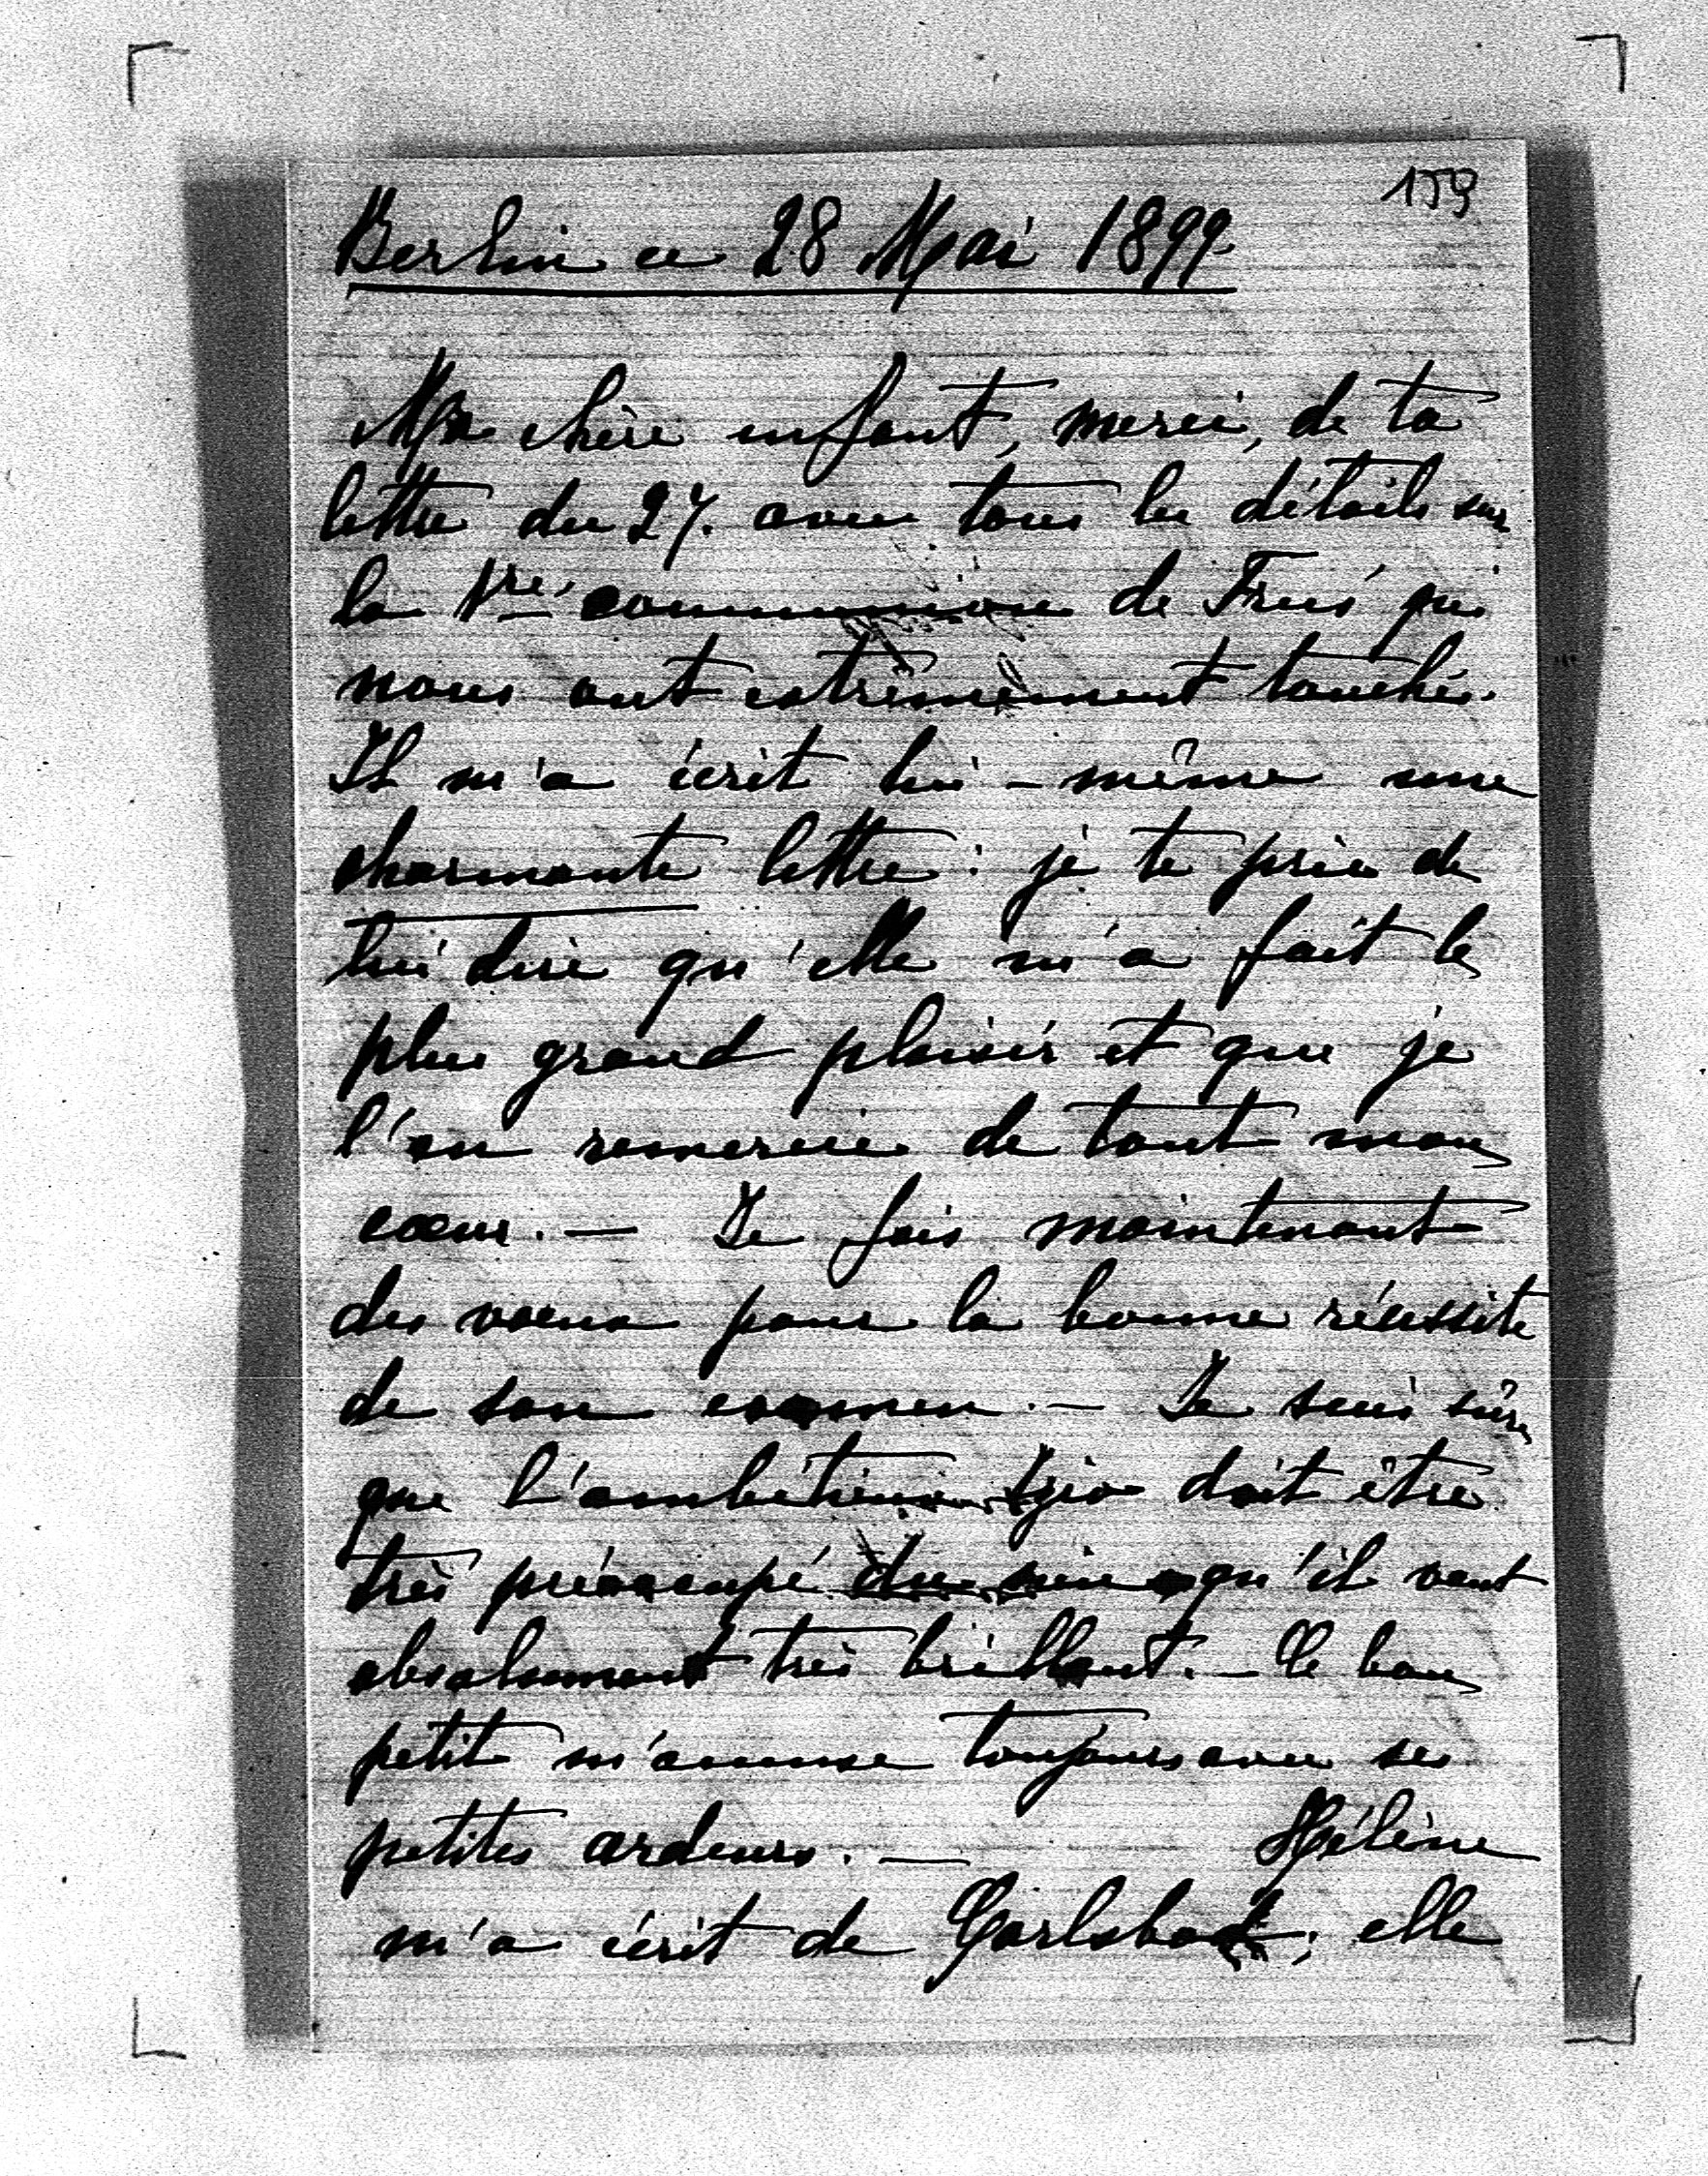 159
Berlin ce 28 Mai 1899
Ma chère enfant, merci, de ta
lettre du 27. avec tous les détails sur
la 1re communion de qui
nous ont extrêmement touchés.
Il m'a écrit lui-même une
charmante lettre : je te prie de
lui dire qu'elle m'a fait le
plus grand plaisir et que je
l'en remercie de tout mon
cœur. — Je fais maintenant
des vœux pour la bonne réussite
de son examen. — Je suis sûre
que l'ambitieux doit être
très préoccupé du sien qu'il veut
absolument très brillant. — Ce bon
petit m'amuse toujours avec ses
petites ardeurs. — Hélène
m'a écrit de Carlsbad ; elle